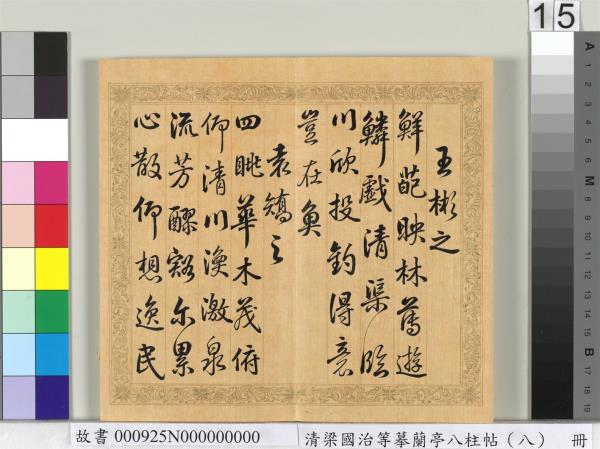 王彬之
鮮葩映林薄遊
鱗戲清渠臨
川欣投釣得意
豈在魚
袁矯之
四眺華木茂俯
仰清川渙激泉
流芳醪豁尔累
心散仰想逸民
15
A
1
2
3
4
5
6
M
8
9
10
11
12
13
14
15
B
17
18
19
故書 000925N000000000
清梁國治等摹蘭亭八柱帖（八） 冊